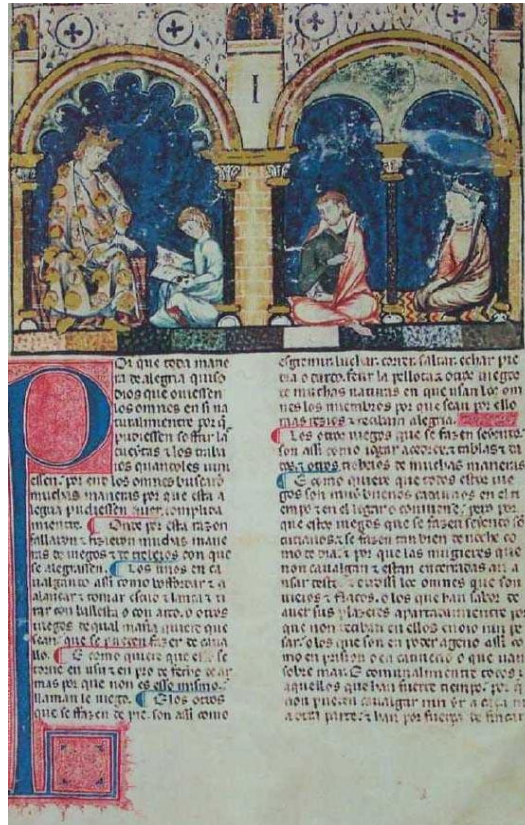 I
Por que toda mane
ra de alegria quiso
dios que ouiessen
los omnes en si na
turalmente por q̃
pudiessen soffrir las
cueytas ⁊ los traba
ios quando les uini
essen. por end los omnes buscaro
muchas maneras por que esta a
legria pudiessen auer complida
miente. Onde por esta razon
fallaron ⁊ fizieron muchas mane
ras de iuegos ⁊ de trebeios con que
se alegrassen. Los unos en ca
ualgando assi como bofordar ⁊ a
lançar ⁊ tomar escud ⁊ lança ⁊ ti
rar con ballesta o con arco. o otros
iuegos de qual manera quiere que
sean. que se pueden fazer de caua
llo. E como quiere que ello se
torne en usu ⁊ en pro de fecho de ar
mas por que non es esso mismo.
llaman le iuego. E los otros
que se ffazen de pie. son assi como
esgremir. luchar. correr. saltar. echar pie
dra o dardo. ferir la pellota. ⁊ otros iuegos
de muchas naturas en que usan los om
nes los miembros por que sean por ello
mas rezios ⁊ reciban alegria.
Los otros iuegos que se fazen seyendo.
son assi como iogar açedrex ⁊ tablas ⁊ da
dos. ⁊ otros trebeios de muchas maneras
E como quiere que todos estos iue
gos son muy buenos cadaunos en el ti
empo ⁊ en el logar o conuiene. pero por
que estos iuegos que se fazen seyendo se
cutianos. ⁊ se fazen tan bien de noche co
mo de dia. ⁊ por que las mugieres que
non caualgan ⁊ estan encerradas an a
usar desto. ⁊ otrossi los omnes que son
uieios ⁊ flacos. o los que han sabor de
auer sus plazeres apartadamiente por
que non reciban en ellos enoio nin pe
sar. o los que son en poder ageno assi co
mo en prision o en catiuerio o que uan
sobre mar. E comunalmiente todos
aquellos que han fuerte tiempo. por q̃
non pueden caualgar nin yr a caça ni
a otra parte. ⁊ han por fuerça de fincar